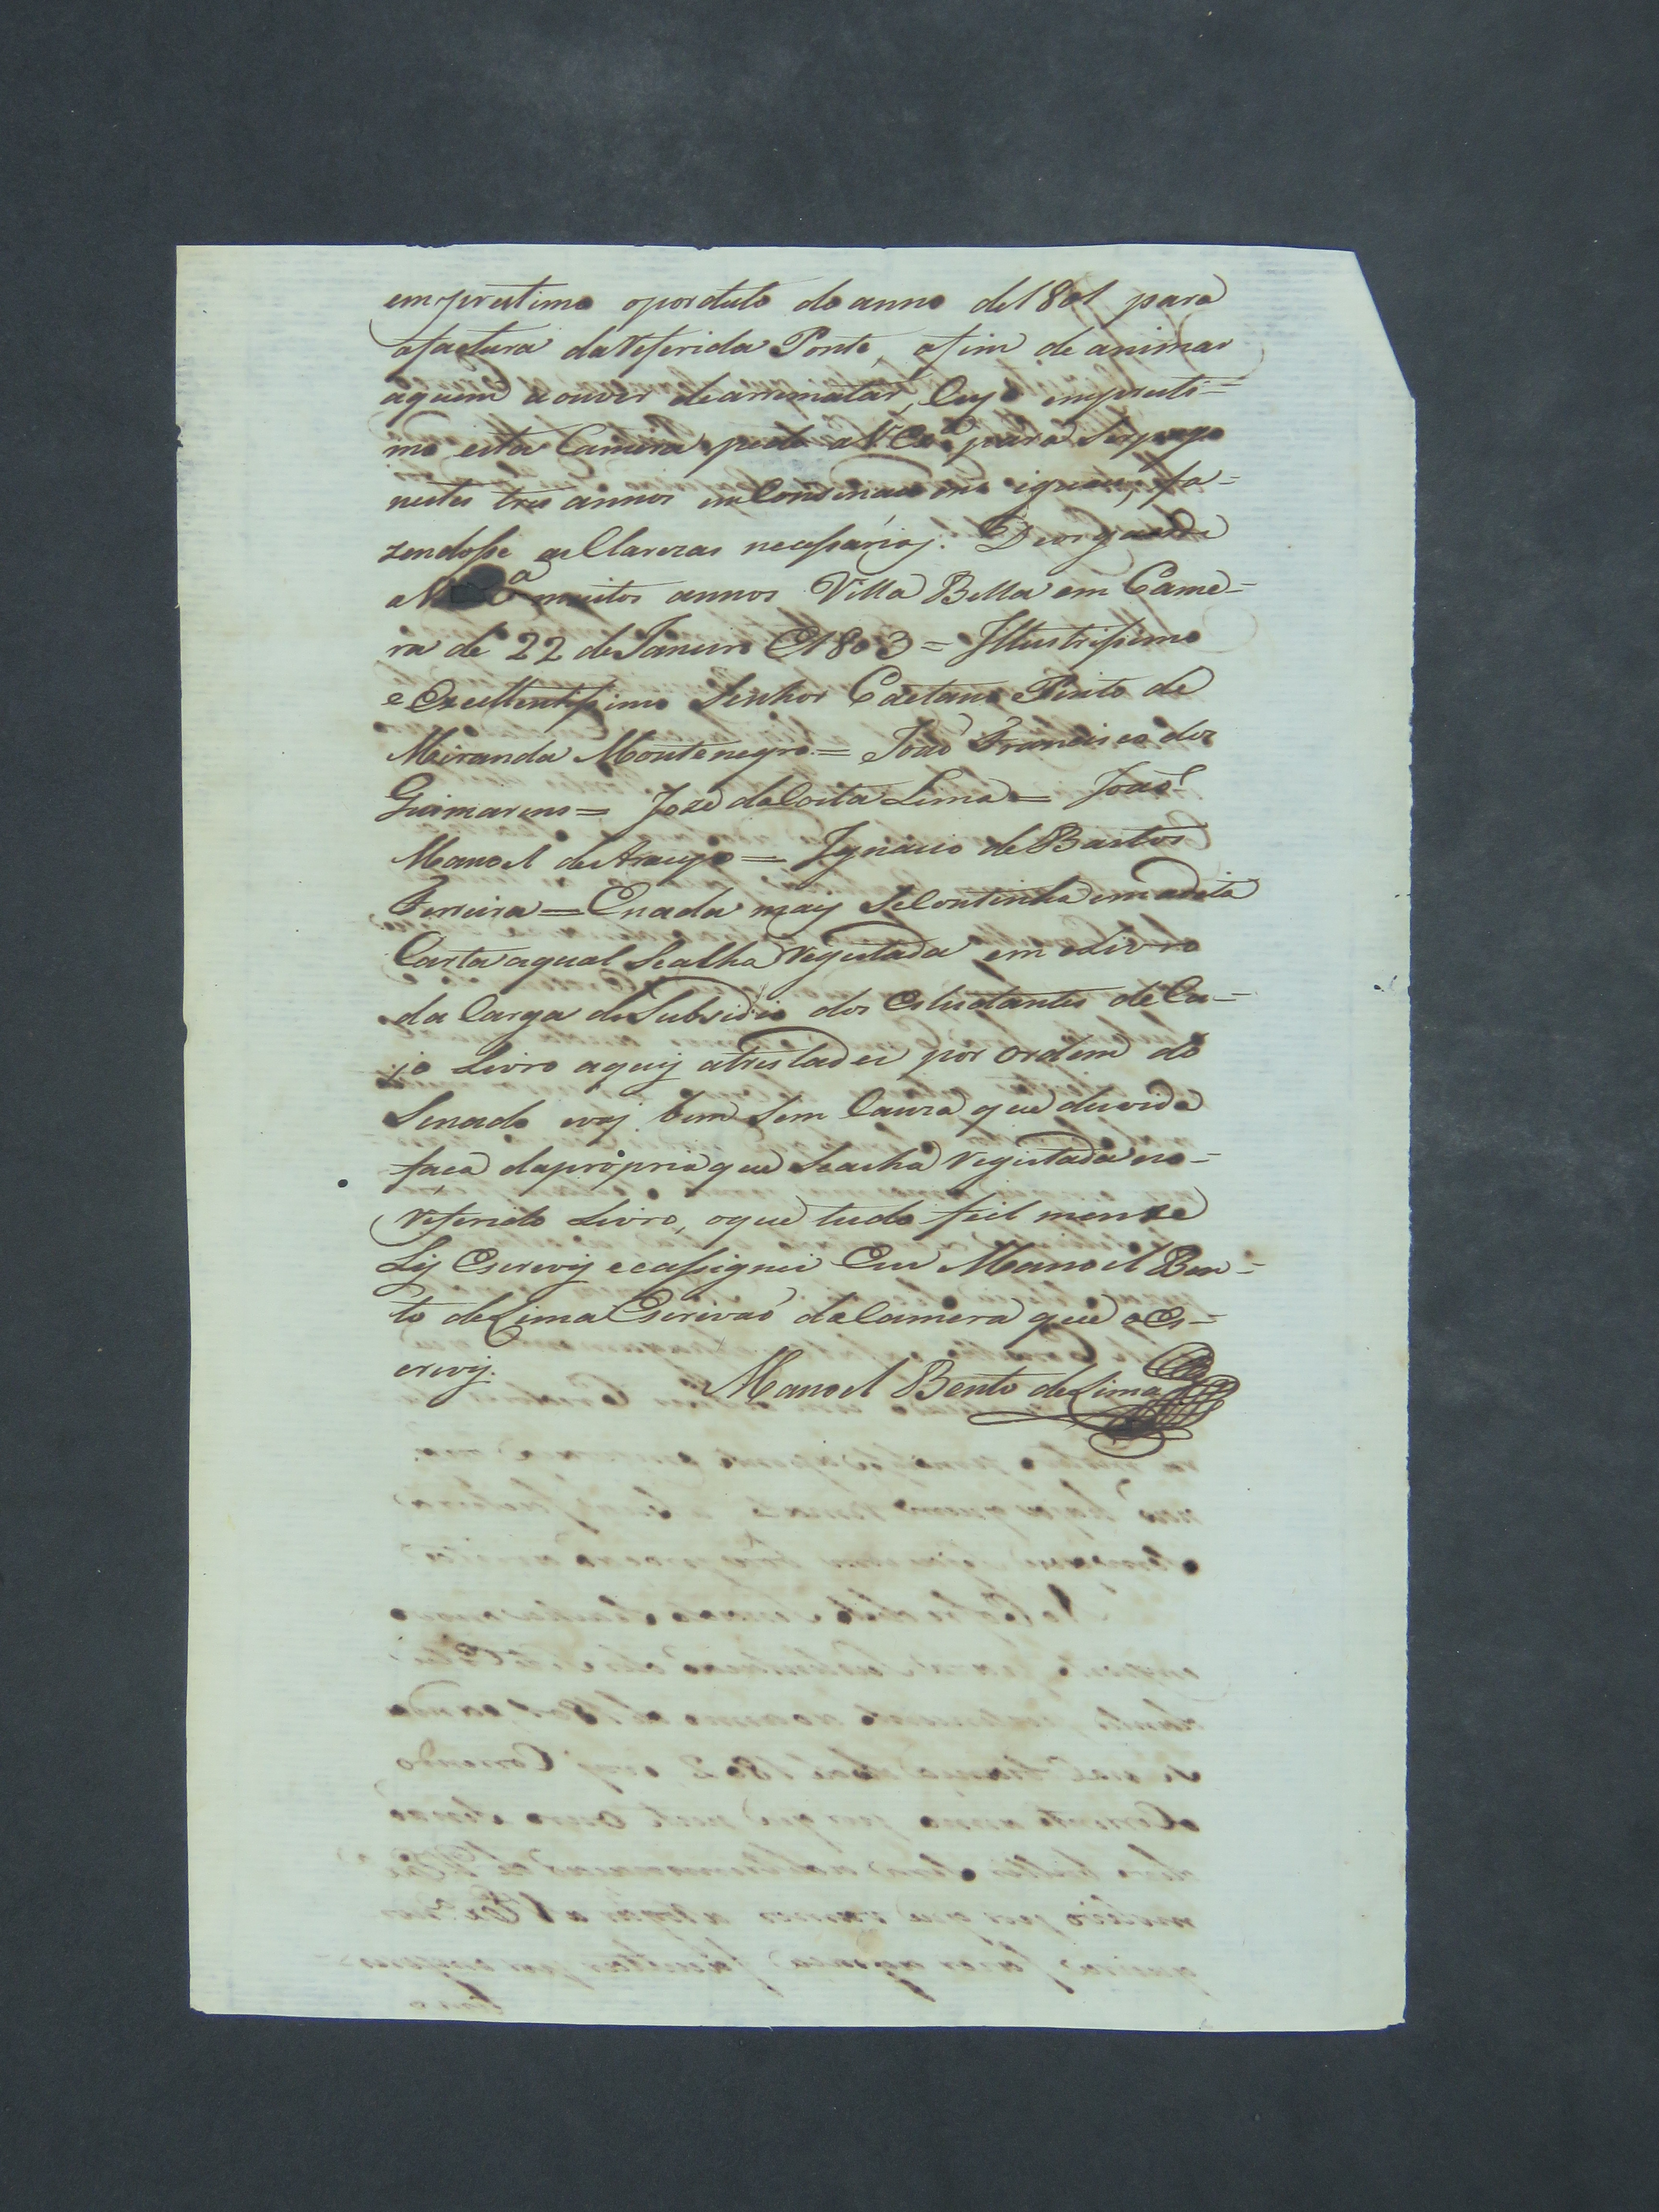 emprestimo oporduto do anno de 1801 para
afactura da referida Ponte, afim de animar
aquem a ouver de arrematar, Cujo empresti=
mo esta Camera pede a V. Ex.ª para Ser pago
nestes tres annos em Consinaçoens iguaes, fa=
zendosse as Clarezas necessarias. Deos guarde
a V. Ex.ª muitos annos Villa Bella em Came=
ra de 22 de Janeiro de 1803 = Illustrissimo
e Excellentissimo Senhor Caetano Pinto de
Miranda Montenegro = João Francisco dos
Guimarens = Joze da Costa Lima = João
Manoel de Araujo = Ignacio de Bastos
Ferreira = E nada mais Se Continha em a dita
Carta a qual Se alha Registada em o Livro
da Carga do Subsidio dos Estudantes de Cu=
jo Livro aquy a tresladei por ordem do
Senado evaj bem Sem Cauza que duvida
faça da propria que Se acha registada no=
referido Livro, o que tudo fiel mente
Ly Escrevy e assignei Eu Manoel Ben=
to de Lima Escrivaõ da Camera que o Es=
crevy.
Manoel Bento de Lima